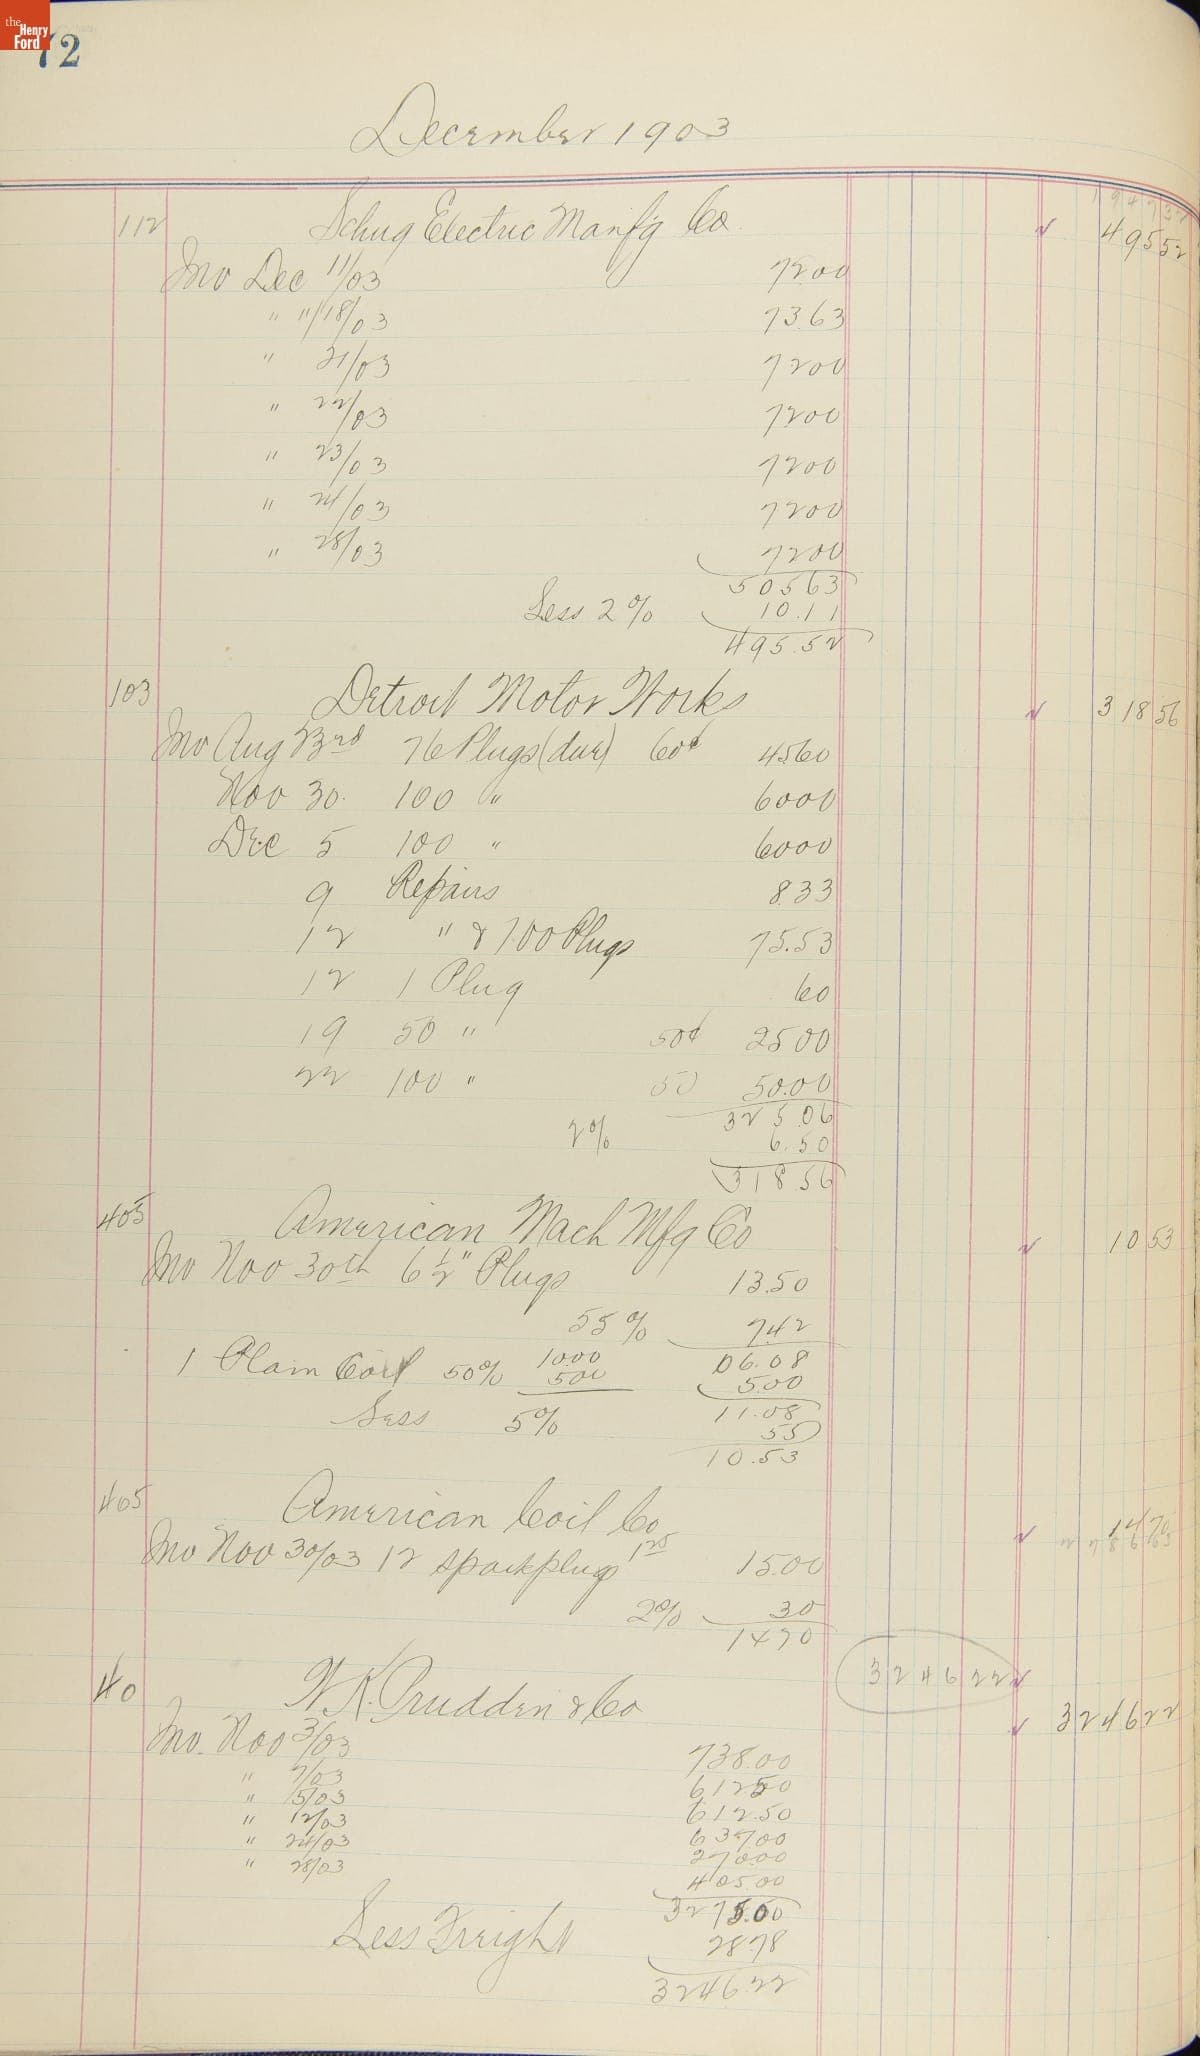 the Henry Ford
72
December 1903
112 Schug Electric Manf'g Co. 495 52
Inv Dec 11/03 72.00
" " 18/03 73.63
" 21/03 7200
" 22/03 7200
" 23/03 7200
" 24/03 7200
" 28/03 7200
50563
Less 2% 10.11
495.52
103 Detroit Motor Works 318 56
Inv Aug 23rd 76 Plugs 60¢ 45.60
Nov 30. 100 " 6000
Dec 5 100 " 6000
9 Repairs 8.33
12 " & 100 Plugs 75.53
12 1 Plug 60
19 50 " 50¢ 25 00
22 100 " 50 50.00
325.06
2% 6.50
318 56
405 American Mach Mfg Co 10 53
Inv Nov 30th 6 1/2" Plugs 13.50
55% 7.42
06.08
1 Plain Coil 50% 1000 500 5.00
11.08
Less 5% 55
10.53
405 American Coil Co 14 70
Inv Nov 30/03 12 sparkplugs 1.25 15.00
2% 30
1470
324622
40 W.K. Prudden & Co 324622
Inv. Nov 3/03 738.00
" 7/03 612.50
" 15/03 612.50
" 12/03 637.00
" 24/03 270.00
" 28/03 405.00
3275.00
Less Freight 28.78
3246.22